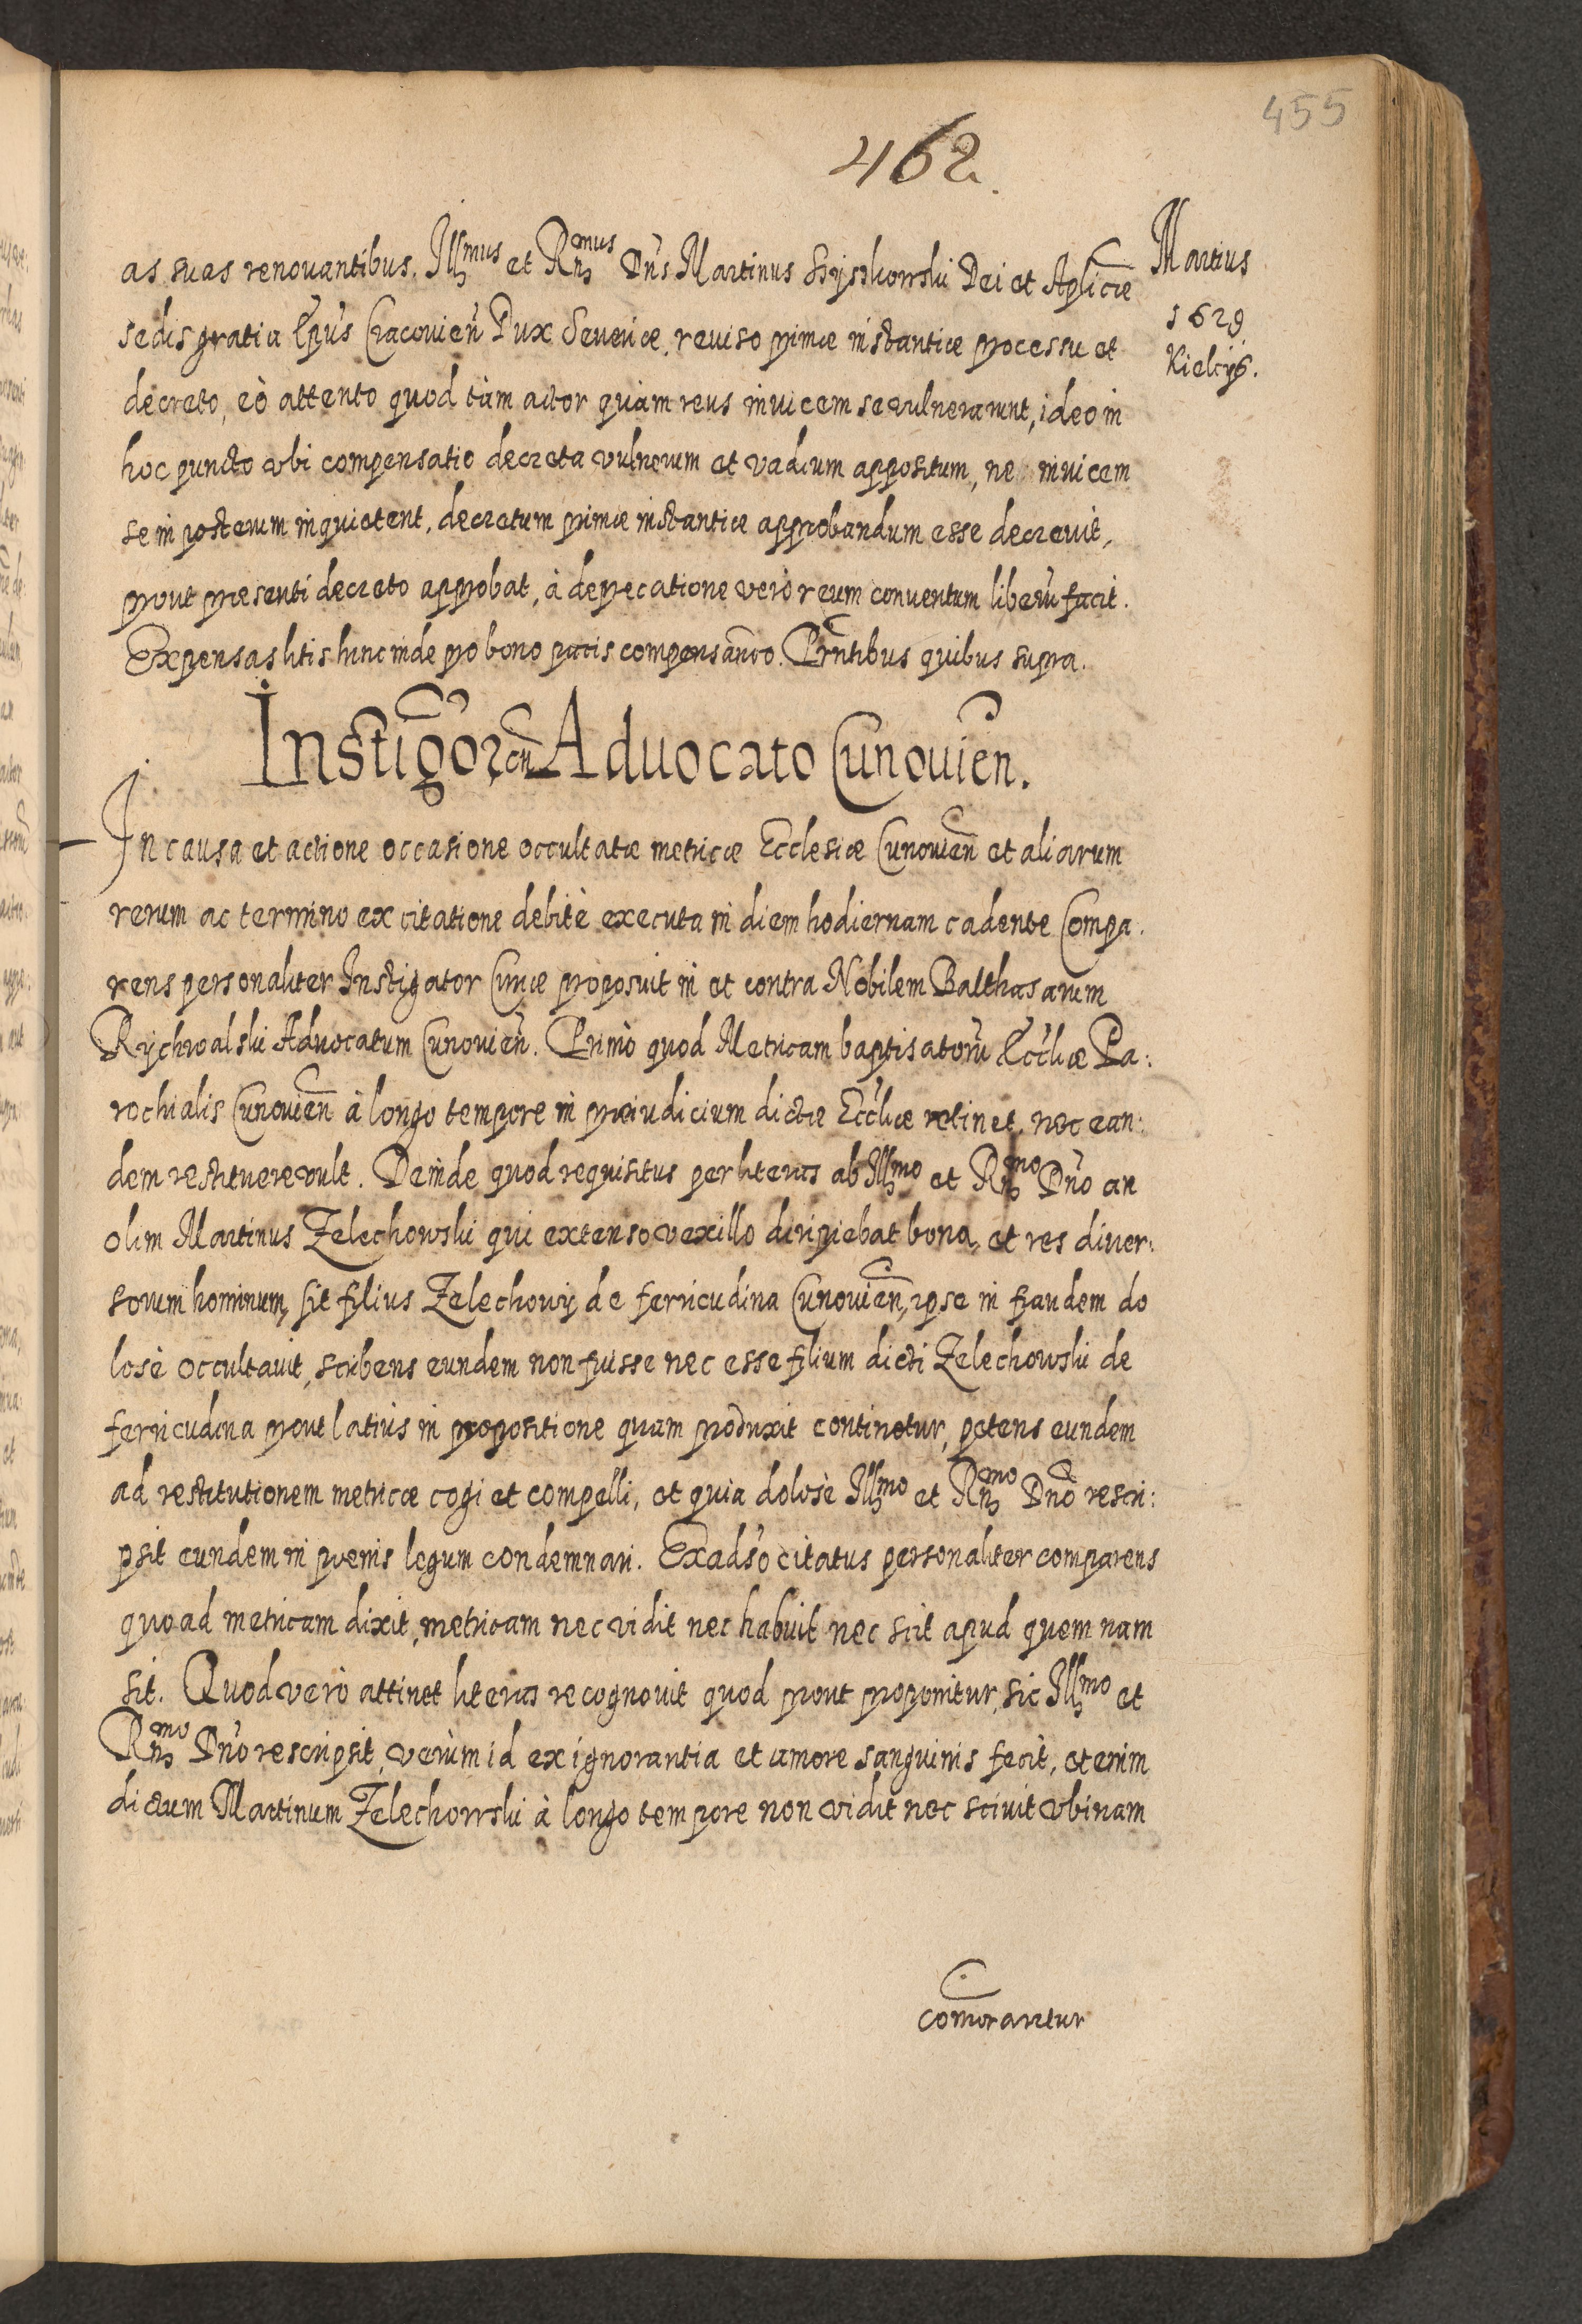 455
462.
Martius
1629
Kielcijs.
as suas renouantibus. Illmus et Rndmus Dns Martinus Szyszkowski Dei et Aplicæ
sedis gratia Epus Cracovien Dux Severiæ, reviso primæ instantiæ processu et
decreto, eò attento quod tàm actor quàm reus invicem se vulnerarunt, ideo in
hoc puncto vbi compensatio decreta vulnerum et vadium appositum, ne invicem
se in posterum inquietent, decretum primæ instantiæ approbandum esse decrevit,
prout præsenti decreto approbat, à deprecatione verò reum conventum liberu facit.
Expensas litis hinc inde pro bono pacis compensando. Prntibus quibus supra.
Instigor cu Advocato Cunovien.
In causa et actione occasione occultatæ metricæ Ecclesiæ Cunovien et aliarum
rerum ac termino ex citatione debitè executa in diem hodiernam cadente Compa:
rens personaliter Instigator Curiæ proposuit in et contra Nobilem Balthasarum
Rychwalski Advocatum Cunovien. Primò quod Metricam baptisatoru Eccliæ Pa:
rochialis Cunovien à longo tempore in præiudicium dictæ Eccliæ retinet, nec ean:
dem restituere vult. Deinde quod requisitus per literas ab Illmo et Rndmo Dno an
olim Martinus Zelechowski qui extenso vexillo diripiebat bona, et res diver:
sorum hominum, sit filius Zelechowij de ferricudina Cunovien, ipse in fraudem do
losè occultavit, scribens eundem non fuisse nec esse filium dicti Zelechowski de
ferricudina prout latiùs in propositione quam produxit continetur, petens eundem
ad restitutionem metricæ cogi et compelli, et quia dolosè Illmo et Rndmo Dno rescri:
psit eundem in pœnis legum condemnari. Ex adso citatus personaliter comparens
quoad metricam dixit, metricam nec vidit nec habuit nec scit apud quem nam
sit. Quod verò attinet literas recognovit quod prout proponitur, sic Illmo et
Rndmo Dno rescripsit, verùm id ex ignorantia et amore sanguinis fecit, etenim
dictum Martinum Zelechowski à longo tempore non vidit nec scivit vbinam
comorantur